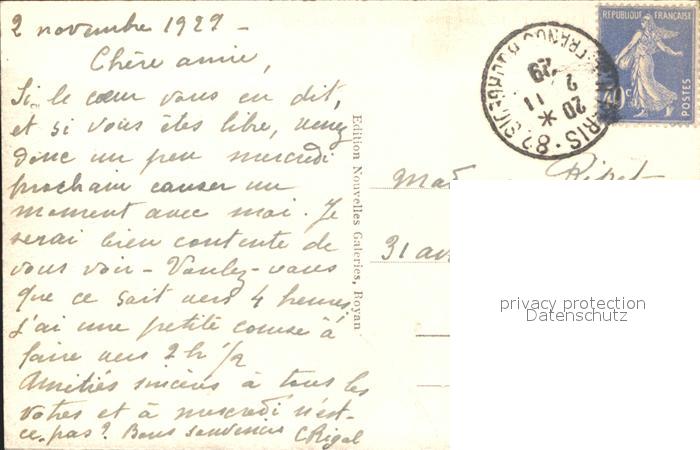 2 novembre 1929 -
Chère amie,
Si le cœur vous en dit,
et si vous êtes libre, venez
donc un peu mercredi
prochain causer un
moment avec moi. Je
serai bien contente de
vous voir - Voulez-vous
que ce soit vers 4 heures,
j'ai une petite course à
faire vers 2h 1/2
Amitiés sincères à tous les
vôtres et à mercredi n'est-
ce pas? Bons souvenirs CRigal
Edition Nouvelles Galeries, Royan
REPUBLIQUE FRANÇAISE
40c
POSTES
20
2 11
29
Mad
31 av
privacy protection
Datenschutz